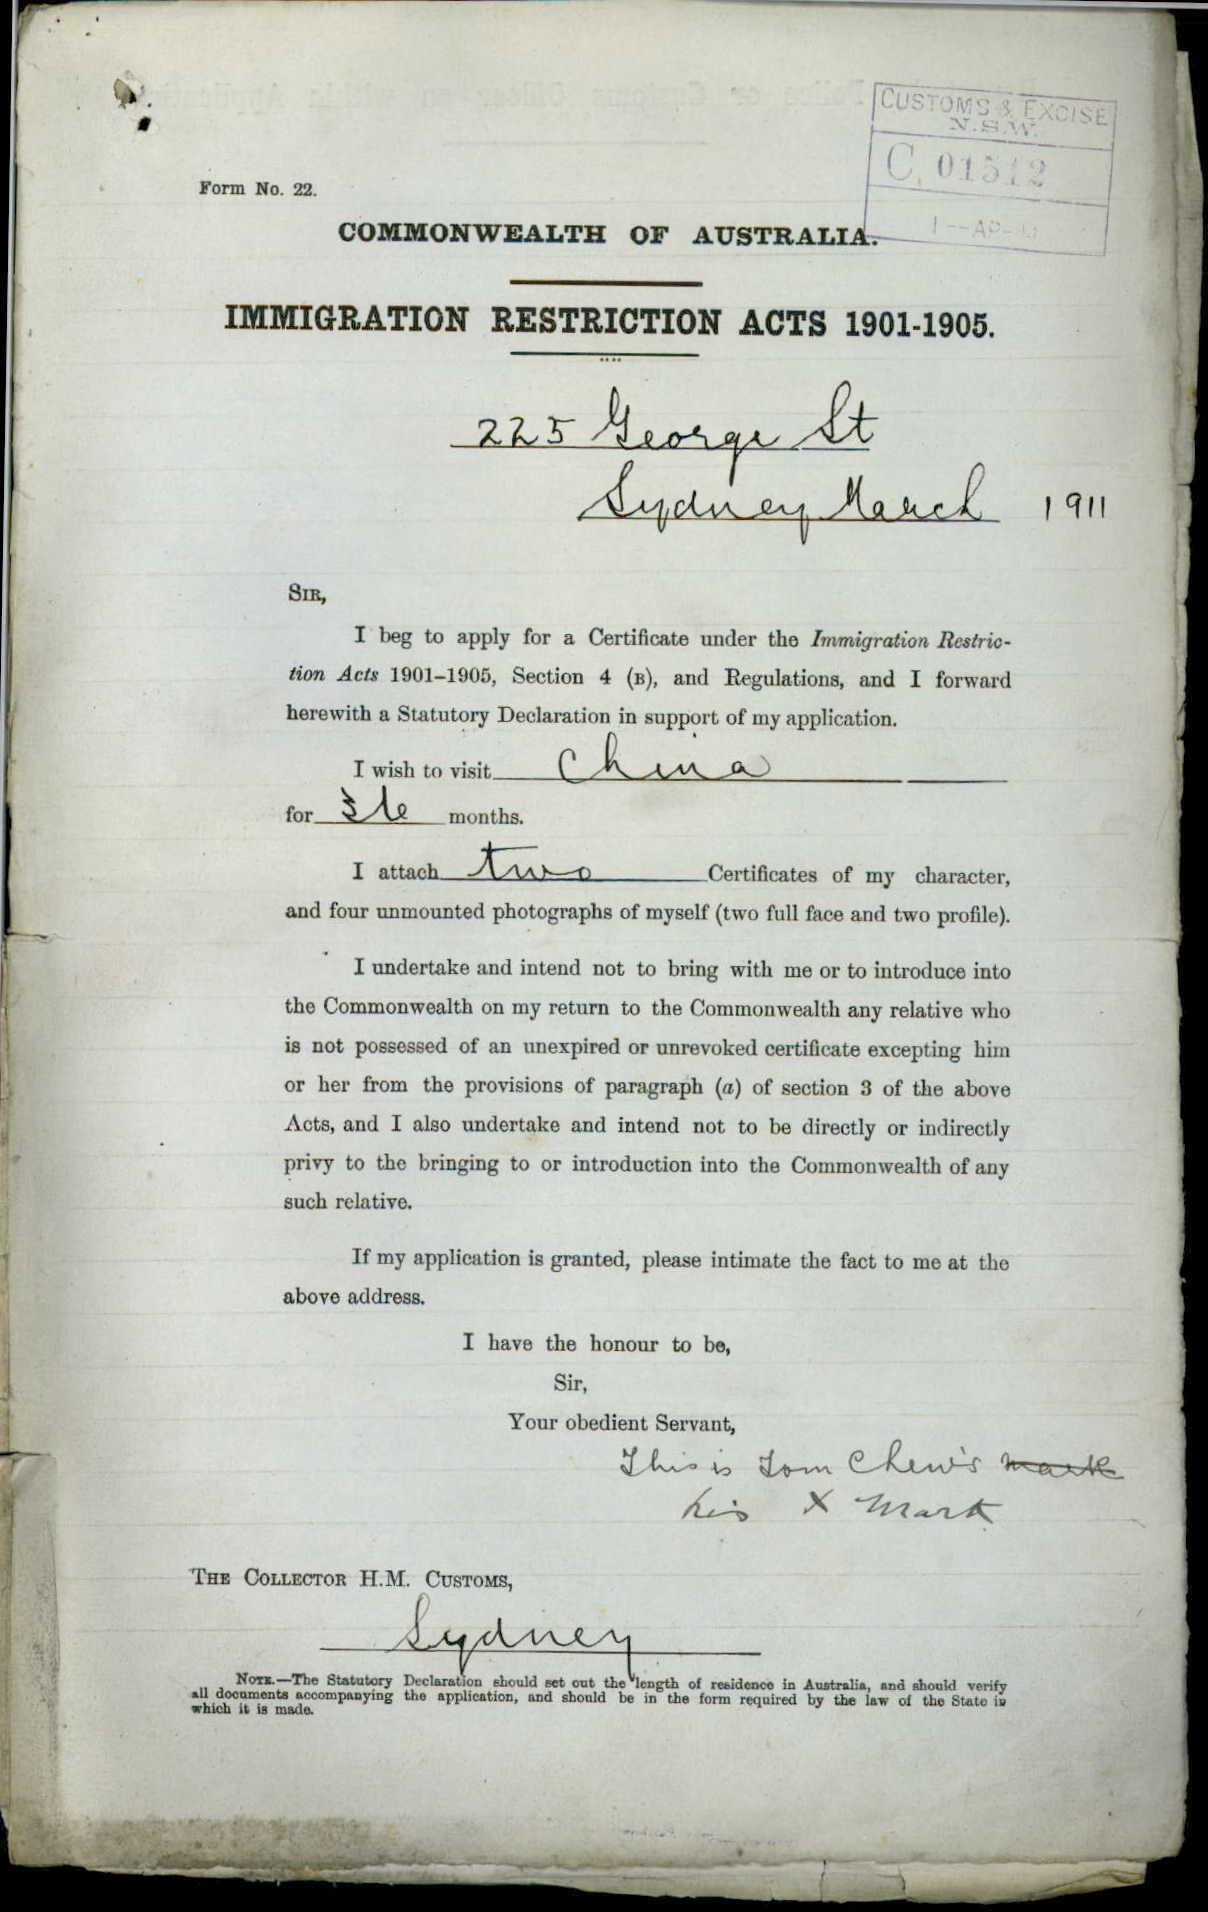 CUSTOMS & EXCISE
N.S.W.
C. 01512
1 - AP -
Form No. 22.
COMMONWEALTH OF AUSTRALIA.
IMMIGRATION RESTRICTION ACTS 1901-1905.
225 George St
Sydney March 1911
SIR,
I beg to apply for a Certificate under the Immigration Restric-
tion Acts 1901–1905, Section 4 (B), and Regulations, and I forward
herewith a Statutory Declaration in support of my application.
I wish to visit China
for 36 months.
I attach two Certificates of my character,
and four unmounted photographs of myself (two full face and two profile).
I undertake and intend not to bring with me or to introduce into
the Commonwealth on my return to the Commonwealth any relative who
is not possessed of an unexpired or unrevoked certificate excepting him
or her from the provisions of paragraph (a) of section 3 of the above
Acts, and I also undertake and intend not to be directly or indirectly
privy to the bringing to or introduction into the Commonwealth of any
such relative.
If my application is granted, please intimate the fact to me at the
above address.
I have the honour to be,
Sir,
Your obedient Servant,
This is Tom Chew's mark
his X Mark
THE COLLECTOR H.M. CUSTOMS,
Sydney
NOTE.—The Statutory Declaration should set out the length of residence in Australia, and should verify
all documents accompanying the application, and should be in the form required by the law of the State in
which it is made.